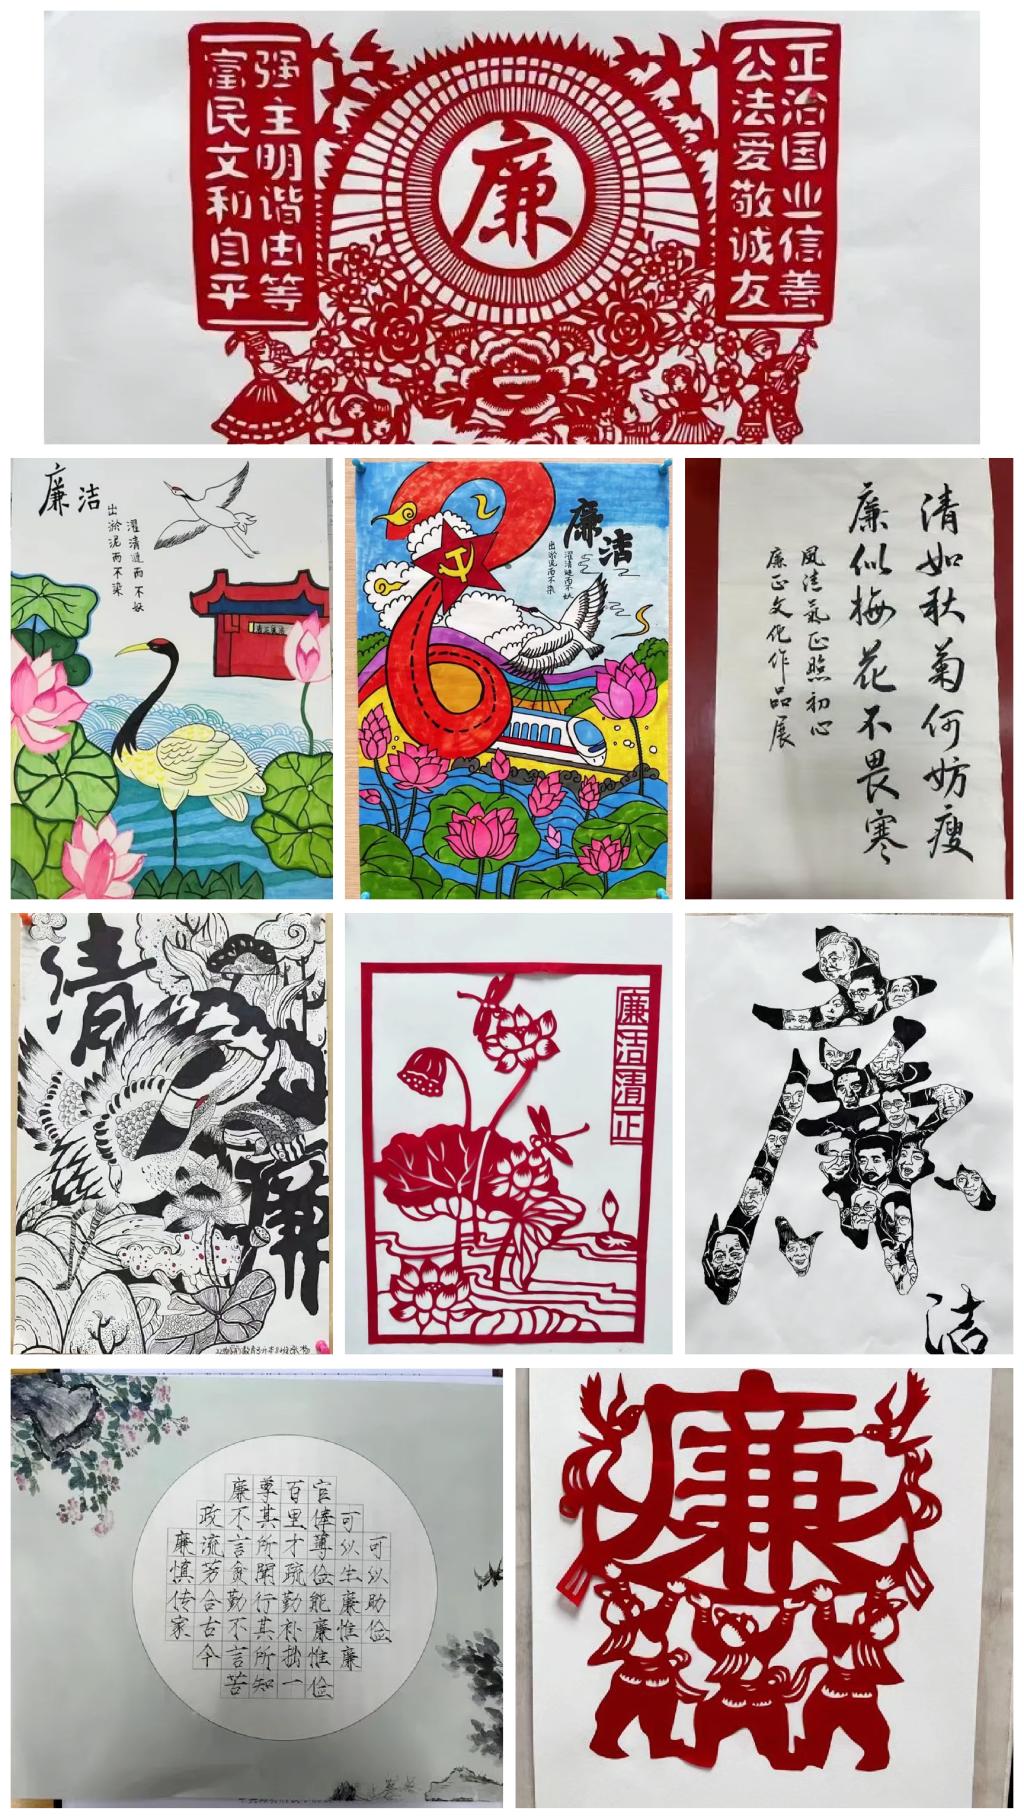 富强
民主
文明
和谐
自由
平等
廉
公正
法治
爱国
敬业
诚信
友善
廉洁
出淤泥而不染
濯清涟而不妖
廉洁
出淤泥而不染
濯清涟而不妖
清如秋菊何妨瘦
廉似梅花不畏寒
风清气正照初心
廉正文化作品展
清廉
廉洁清正
廉洁
可以助俭
可以生廉惟廉
官俸薄俭能廉惟俭
百里才疏勤补拙一
尊其所闻行其所知
廉不言贫勤不言苦
政流芳合古今
廉慎传家
廉